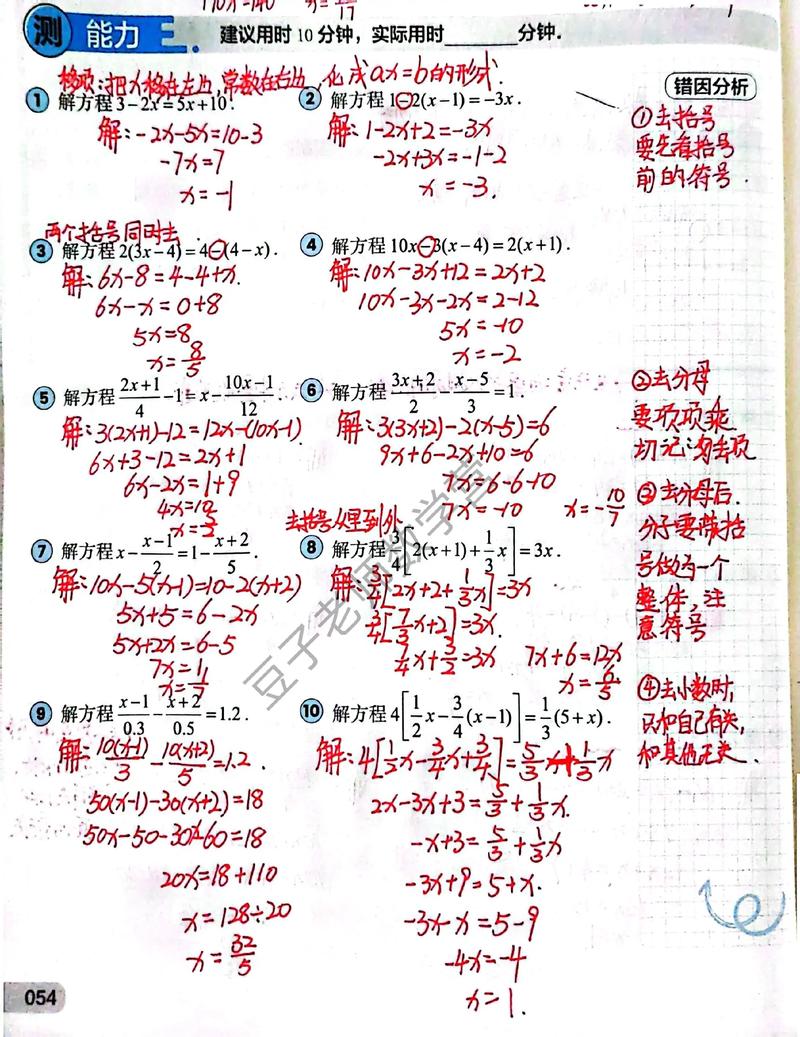 测 能力二. 建议用时10分钟，实际用时 分钟.
移项：把x移在左边,常数在右边,化成ax=b的形式.
错因分析
1 解方程3-2x=5x+10.
解:-2x-5x=10-3
-7x=7
x=-1
2 解方程1-2(x-1)=-3x.
解:1-2x+2=-3x
-2x+3x=-1-2
x=-3.
①去括号
要先看括号
前的符号.
两个括号同时去
3 解方程2(3x-4)=4-(4-x).
解:6x-8=4-4+x.
6x-x=0+8
5x=8
x=8/5
4 解方程10x-3(x-4)=2(x+1).
解:10x-3x+12=2x+2
10x-3x-2x=2-12
5x=-10
x=-2
5 解方程(2x+1)/4-1=x-(10x-1)/12.
解:3(2x+1)-12=12x-(10x-1)
6x+3-12=2x+1
6x-2x=1+9
4x=10
6 解方程(3x+2)/2-(x-5)/3=1.
解:3(3x+2)-2(x-5)=6
9x+6-2x+10=6
7x=6-6-10
7x=-10 x=-10/7
②去分母
要项项乘
切记漏项
③去分母后.
分子要带括
号做为一个
整体,注
意符号
7 解方程x-(x-1)/2=1-(x+2)/5.
解:10x-5(x-1)=10-2(x+2)
5x+5=6-2x
5x+2x=6-5
7x=1
x=1/7
去括号从里到外
8 解方程3/4[2(x+1)+1/3x]=3x.
解:3/4[2x+2+1/3x]=3x
3/4[7/3x+2]=3x.
7/4x+3/2=3x 7x+6=12x
x=6/5
④去小数时,
只和自己有关,
和其他无关.
9 解方程(x-1)/0.3-(x+2)/0.5=1.2.
解:10(x-1)/3-10(x+2)/5=1.2.
50(x-1)-30(x+2)=18
50x-50-30x-60=18
20x=18+110
x=128÷20
x=32/5
10 解方程4[1/2x-3/4(x-1)]=1/3(5+x).
解:4[1/2x-3/4x+3/4]=5/3+1/3x
2x-3x+3=5/3+1/3x.
-x+3=5/3+1/3x
-3x+9=5+x.
-3x-x=5-9
-4x=-4
x=1.
豆子老师数学堂
054